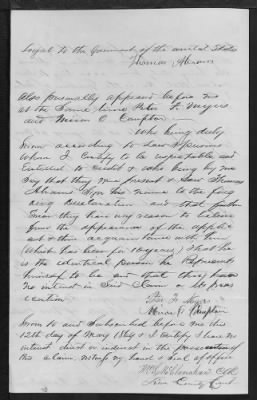 Loyal to the Government of the United States
Thomas
Also personally appeared before me
at the same time Peter F. Meyers
and O Compton
Who being duly
sworn according to Law & persons
whom I certify to be respectable and
entitled to credit & who being by me
say that they were present & saw Thomas
sign his name to the foreg
oing declaration and that further
more they have every reason to believe
from the appearance of the applic
ant & their acquaintance with him
(which has been for years) that he
is the identical person he represents
himself to be and that they have
no interest in said claim or its pros
ecution
Compton
Sworn to and subscribed before me this
12th day of May 1864 & I certify I have no
interest direct or indirect in the prosecution of
this claim. Witness my hand & seal of office
Clk
County Court